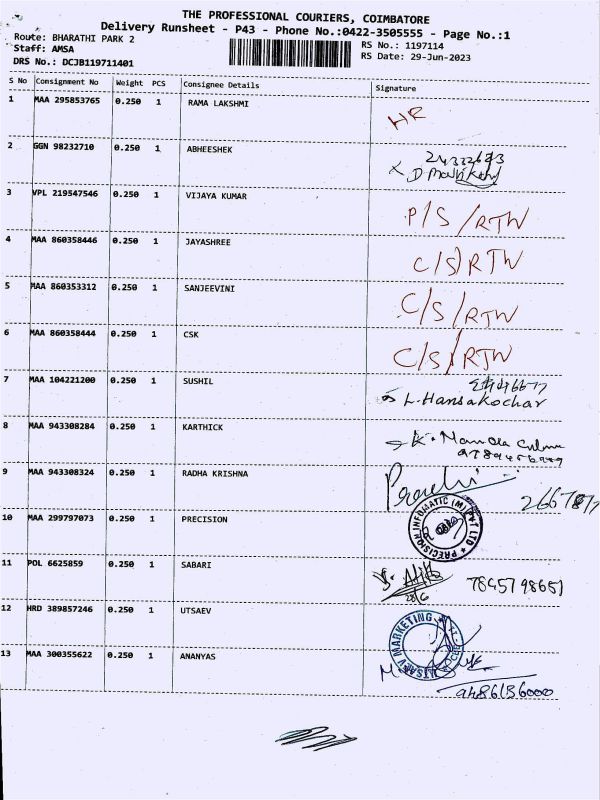 THE PROFESSIONAL COURIERS, COIMBATORE
Delivery Runsheet - P43 - Phone No.:0422-3505555 - Page No.:1
Route: BHARATHI PARK 2
RS No.: 1197114
Staff: AMSA
RS Date: 29-Jun-2023
DRS No.: DCJB119711401
S No Consignment No Weight PCS Consignee Details Signature
1 MAA 295853765 0.250 1 RAMA LAKSHMI
HR
2 GGN 98232710 0.250 1 ABHEESHEK
3 VPL 219547546 0.250 1 VIJAYA KUMAR
P/S/RTW
4 MAA 860358446 0.250 1 JAYASHREE
C/S/RTW
5 MAA 860353312 0.250 1 SANJEEVINI
C/S/RTW
6 MAA 860358444 0.250 1 CSK
C/S/RTW
7 MAA 104221200 0.250 1 SUSHIL
L.Hansakochar
8 MAA 943308284 0.250 1 KARTHICK
9 MAA 943308324 0.250 1 RADHA KRISHNA
10 MAA 299797073 0.250 1 PRECISION
PRECISION INFOMATIC (M) PVT LTD
11 POL 6625859 0.250 1 SABARI
7845798651
28/6
12 HRD 389857246 0.250 1 UTSAEV
UTSAEV MARKETING
13 MAA 300355622 0.250 1 ANANYAS